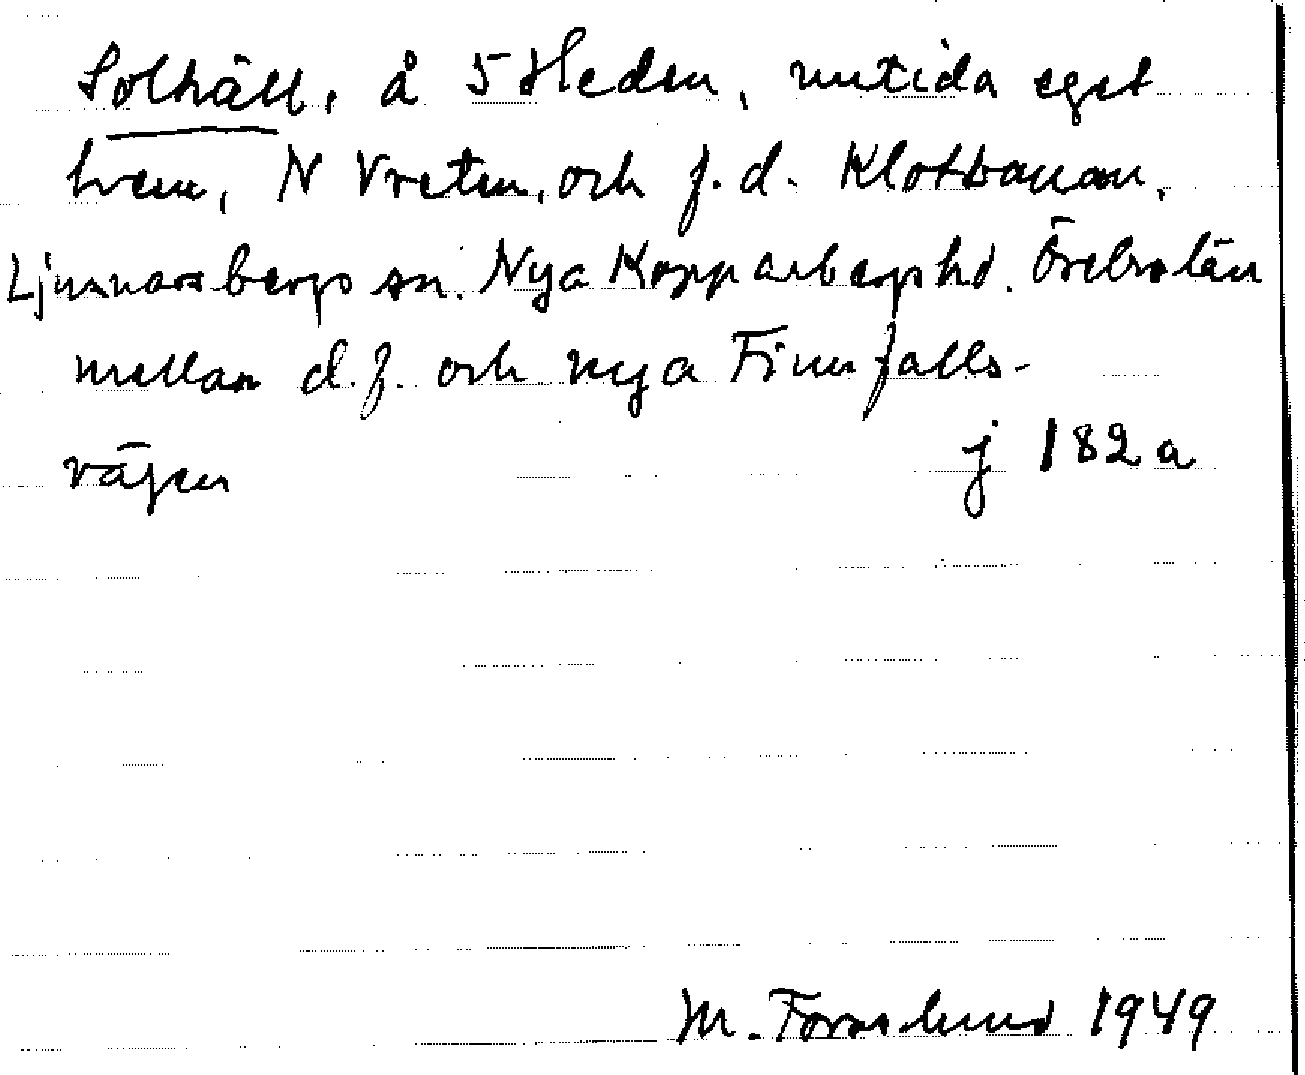 Solhäll, å 5 Heden, nutida eget
hem, N Vreten, och f.d. Klotbanan,
Ljusnarsbergs sn. Nya Kopparbergs hd. Örebro län
mellan d.f. och nya Finnfalls-
vägen j 182 a
M. Forslund 1949